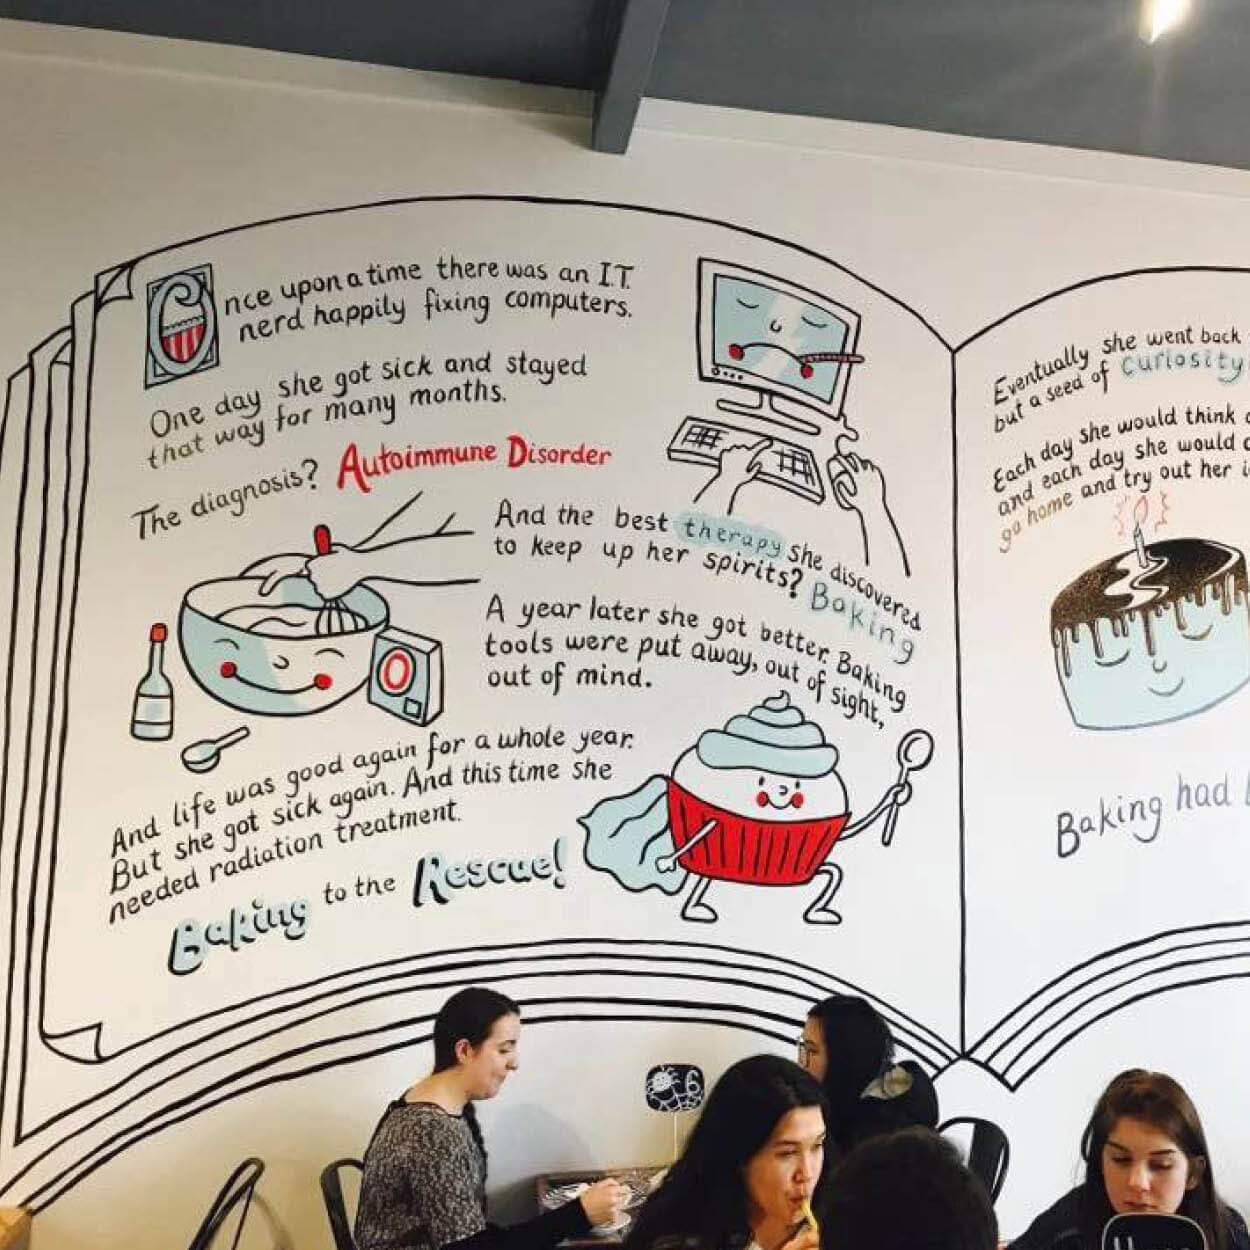 Once upon a time there was an I.T.
nerd happily fixing computers.
One day she got sick and stayed
that way for many months.
The diagnosis? Autoimmune Disorder
And the best therapy she discovered
to keep up her spirits? Baking
A year later she got better. Baking
tools were put away, out of sight,
out of mind.
And life was good again for a whole year.
But she got sick again. And this time she
needed radiation treatment.
Baking to the Rescue!
Eventually she went back
but a seed of curiosity
Each day she would think
and each day she would
go home and try out her
Baking had
6